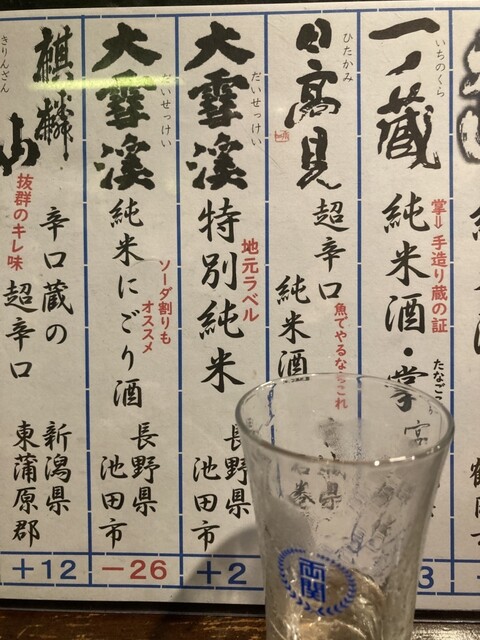 一ノ蔵
いちのくら
純米酒・掌
たなご
掌⇒手造り蔵の証
宮
3
日高見
ひたかみ
超辛口
純米酒
魚でやるならこれ
大雪渓
だいせっけい
特別純米
地元ラベル
長野県
池田市
+2
大雪渓
だいせっけい
純米にごり酒
ソーダ割りも
オススメ
長野県
池田市
-26
麒麟山
きりんざん
辛口蔵の
超辛口
抜群のキレ味
新潟県
東蒲原郡
+12
両関